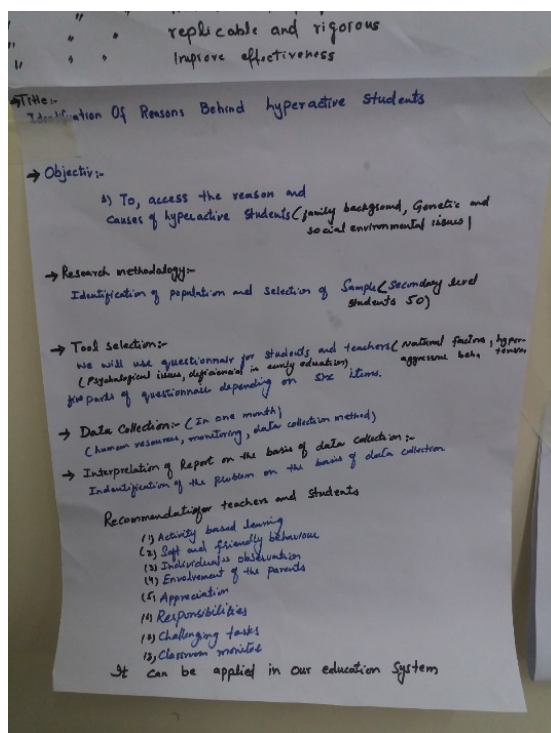 " " " replicable and rigorous
" " " Improve effectiveness
→Title:-
Identification Of Reasons Behind hyperactive Students
→ Objectiv:-
1) To, access the reason and
causes of hyperactive Students (family background, Genetic and
social environmental issues)
→ Research methodalogy:-
Identification of population and selection of Sample (Secondary level
students 50)
→ Tool selection:-
we will use questionnair for students and teachers (Natural factors, hyper-
(Psychological issues, deficiencies in early eduation) aggressive beha tension,
five parts of questionnair depending on six items.
→ Data Collection:- (In one month)
(human resources, monitoring, data collection method)
→ Interprelation of Report on the basis of data collection:-
Indentification of the problem on the basis of data collection
Recommendation for teachers and Students
(1) Activity based learning
(2) Soft and friendly behaviour
(3) Individual observation
(4) Envolvement of the parents
(5) Appreciation
(6) Responsibilities
Challenging tasks
Classroom monitor
It can be applied in our education System